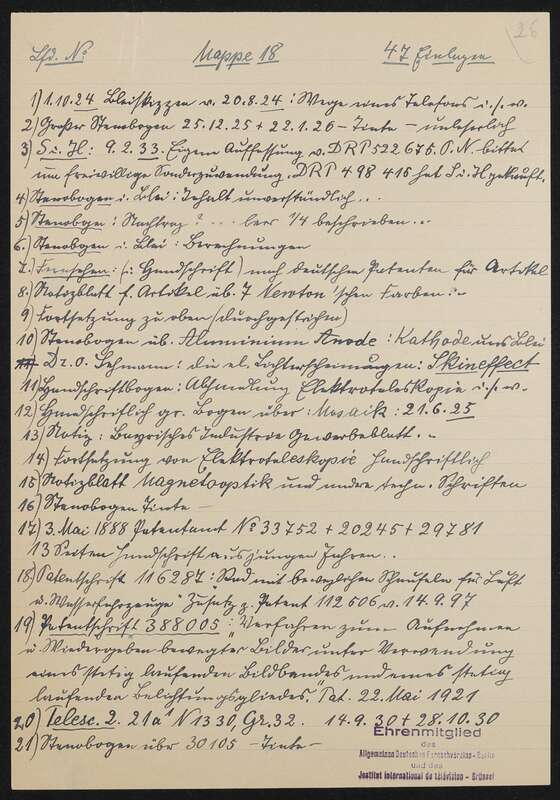 26
Lfd. No Mappe 18 47 Einlagen
1) 1.10.24 Bleiskizzen v. 20.8.24: Wege eines Telefons u.s.w.
2) Großer Stenobogen 25.12.25 + 22.1.26 – Tinte – unleserlich
3) 9.2.33. Eigene Auffassung v. DRP 522 675. P.N. bittet
um freiwillige Sonderzuwendung. DRP 498 415 hat gekauft.
4) Stenobogen i. Blei: Inhalt unverständlich..
5) Stenobogen: Nachtrag ? ... leer 1/4 beschrieben..
6) Stenobogen i. Blei: Berechnungen
7.) Fernsehen: (: Handschrift) nach deutschen Patenten für Artikel
8.) Notizblatt f. Artikel üb. 7 Newton'schen Farben:-
9) Fortsetzung zu oben (durchgestrichen)
10) Stenobogen üb. Aluminium Anode: Kathode aus Blei
Dr. O. Lehmann: die el. Lichterscheinungen: Skineffect
11) Handschriftbogen: Abhandlung Elektroteleskopie u.s.w.
12) Handschriftlich gr. Bogen über: Mosaik: 21.6.25
13) Notiz: Bayrisches Industrie Gewerbeblatt.-
14) Fortsetzung von Elektroteleskopie Handschriftlich
15) Notizblatt Magnetooptik und andre techn. Schriften
16) Stenobogen Tinte –
17) 3. Mai 1888 Patentamt No 33752 + 20245 + 29781
13 Seiten Handschrift aus jungen Jahren..
18) Patentschrift 116287: "Rad mit beweglichen Schaufeln für Luft
u. Wasserfahrzeuge" Zusatz z. Patent 112506 v. 14.9.97
19) Patentschrift 388005: "Verfahren zum Aufnehmen
u. Wiedergeben bewegter Bilder unter Verwendung
eines stetig laufenden Bildbandes und eines stetig
laufenden Belichtungsgliedes." Pat. 22. Mai 1921
20) Telesc. 2. 21a1 N 1330, Gr. 32. 14.9.30 + 28.10.30
21) Stenobogen über 30105 – Tinte –
Ehrenmitglied
des
Allgemeinen Deutschen Fernsehvereins - Berlin
und des
Institut international de télévision - Brüssel